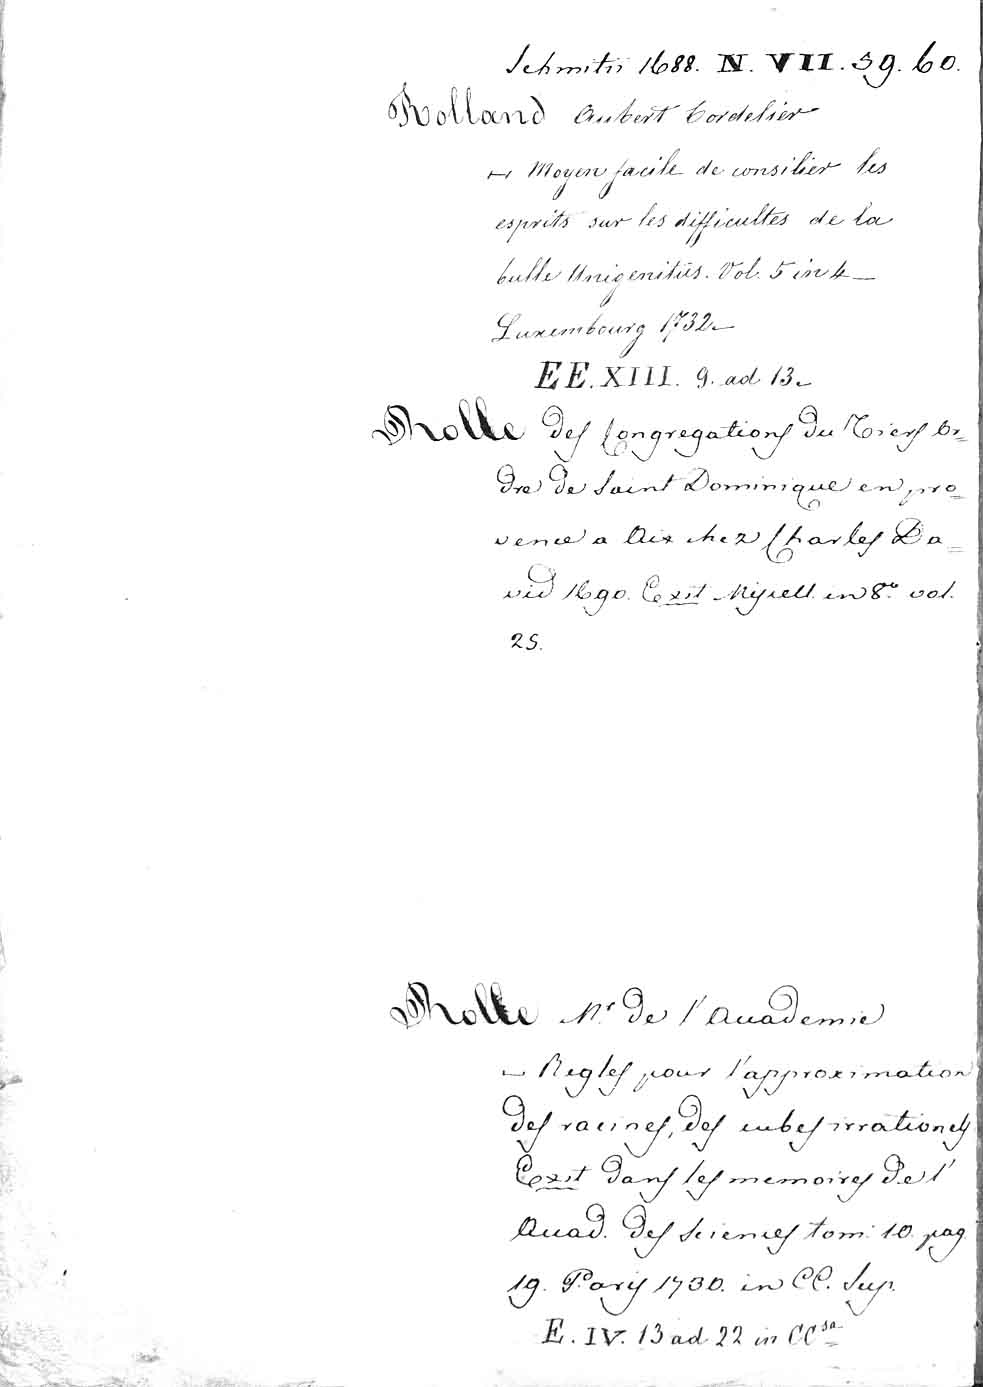 Schmitii 1688. N. VII. 59. 60.
Rolland Aubert Cordelier
↦ Moyen facile de consilier les
esprits sur les difficultes de la
bulle Unigenitus. Vol. 5 in 4_
Luxembourg 1732_
EE. XIII. 9. ad 13.
Rolle des Congregations du Tiers Or=
dre de Saint Dominique en pro=
vence a Aix chez Charles Da=
vid 1690. Exit Miscell. in 8.º vol.
25.
Rolle Mr. de l'Academie
_ Regles pour l'approximation
des racines, des cubes irrationels
Exit dans les memoires de l'
Acad. des sciences tom. 10. pag
19. Paris 1730. in CC. Sup.
E. IV. 13 ad 22 in CCsa